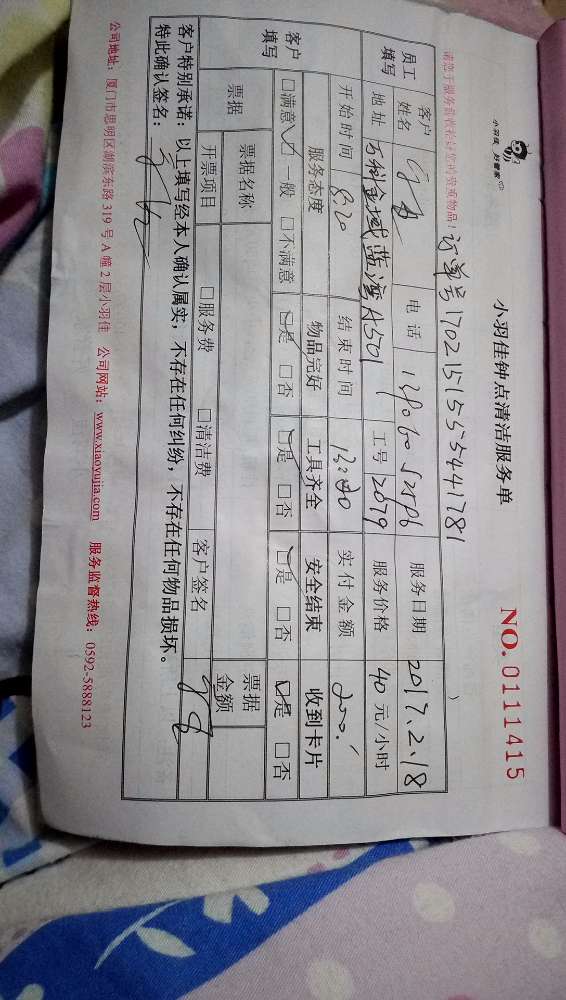 小羽佳 好管家
小羽佳钟点清洁服务单
NO. 0111415
请您于服务前收好您的贵重物品!
订单号1702151555441781
员工填写
客户姓名 电话 服务日期 2017.2.18
地址 万科金域蓝湾A501 工号 2079 服务价格 40 元/小时
开始时间 8:20 结束时间 实付金额 200.
客户填写
服务态度 物品完好 工具齐全 安全结束 收到卡片
□满意 □一般 □不满意 □是 □否 □是 □否 □是 □否 □是 □否
票据 票据名称 票据金额
开票项目 □服务费 □清洁费 客户签名
客户特别承诺:以上填写经本人确认属实,不存在任何纠纷,不存在任何物品损坏。
特此确认签名:
公司地址:厦门市思明区湖滨东路 319 号 A 幢 2 层小羽佳 公司网站:www.xiaoyujia.com 服务监督热线:0592-5888123